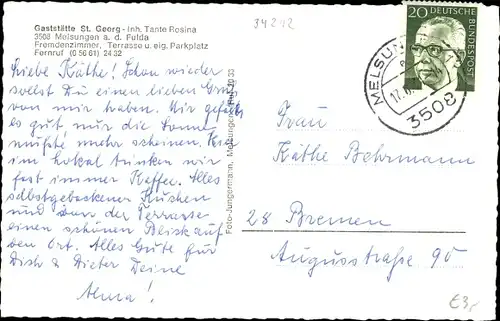 34212
Gaststätte St. Georg - Inh. Tante Rosina
3508 Melsungen a. d. Fulda
Fremdenzimmer, Terrasse u. eig. Parkplatz
Fernruf (0 56 61) 24 32
20
DEUTSCHE BUNDESPOST
MELSUN
3508
Liebe Käthe! Schon wieder
sollst Du einen lieben Gruß
von mir haben. Mir gefällt
es gut, nur die Sonne
müßte mehr scheinen. Hier
im Lokal trinken wir
fast immer Kaffee. Alles
selbstgebackener Kuchen
und von der Terrasse
einen schönen Blick auf
den Ort. Alles Gute für
Dich & Dieter Deine
Alma!
Foto-Jungermann, Melsungen, Ruf 20 33
Frau
Käthe Behrmann
28 Bremen
Augusstraße 90
€3,-